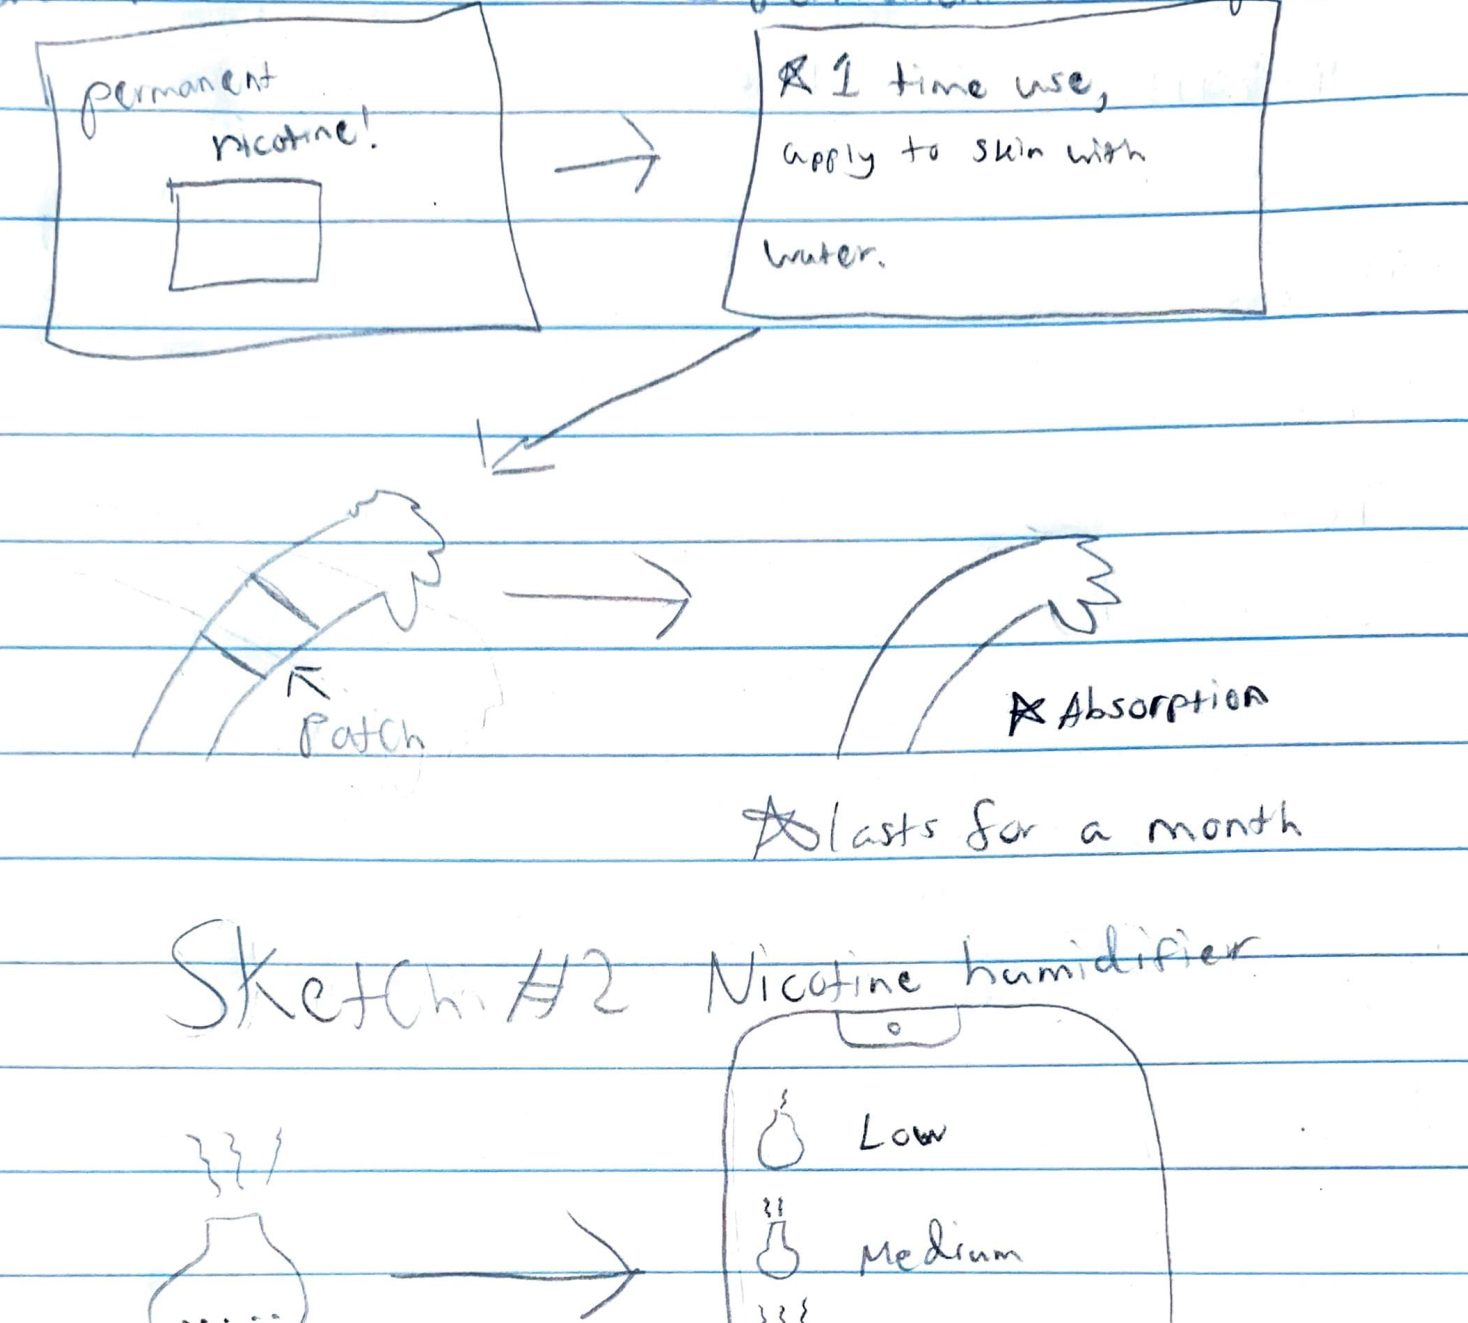 permanent
nicotine!
☆ 1 time use,
apply to skin with
water.
Patch
☆ Absorption
☆ lasts for a month
Sketch #2 Nicotine humidifier
Low
Medium